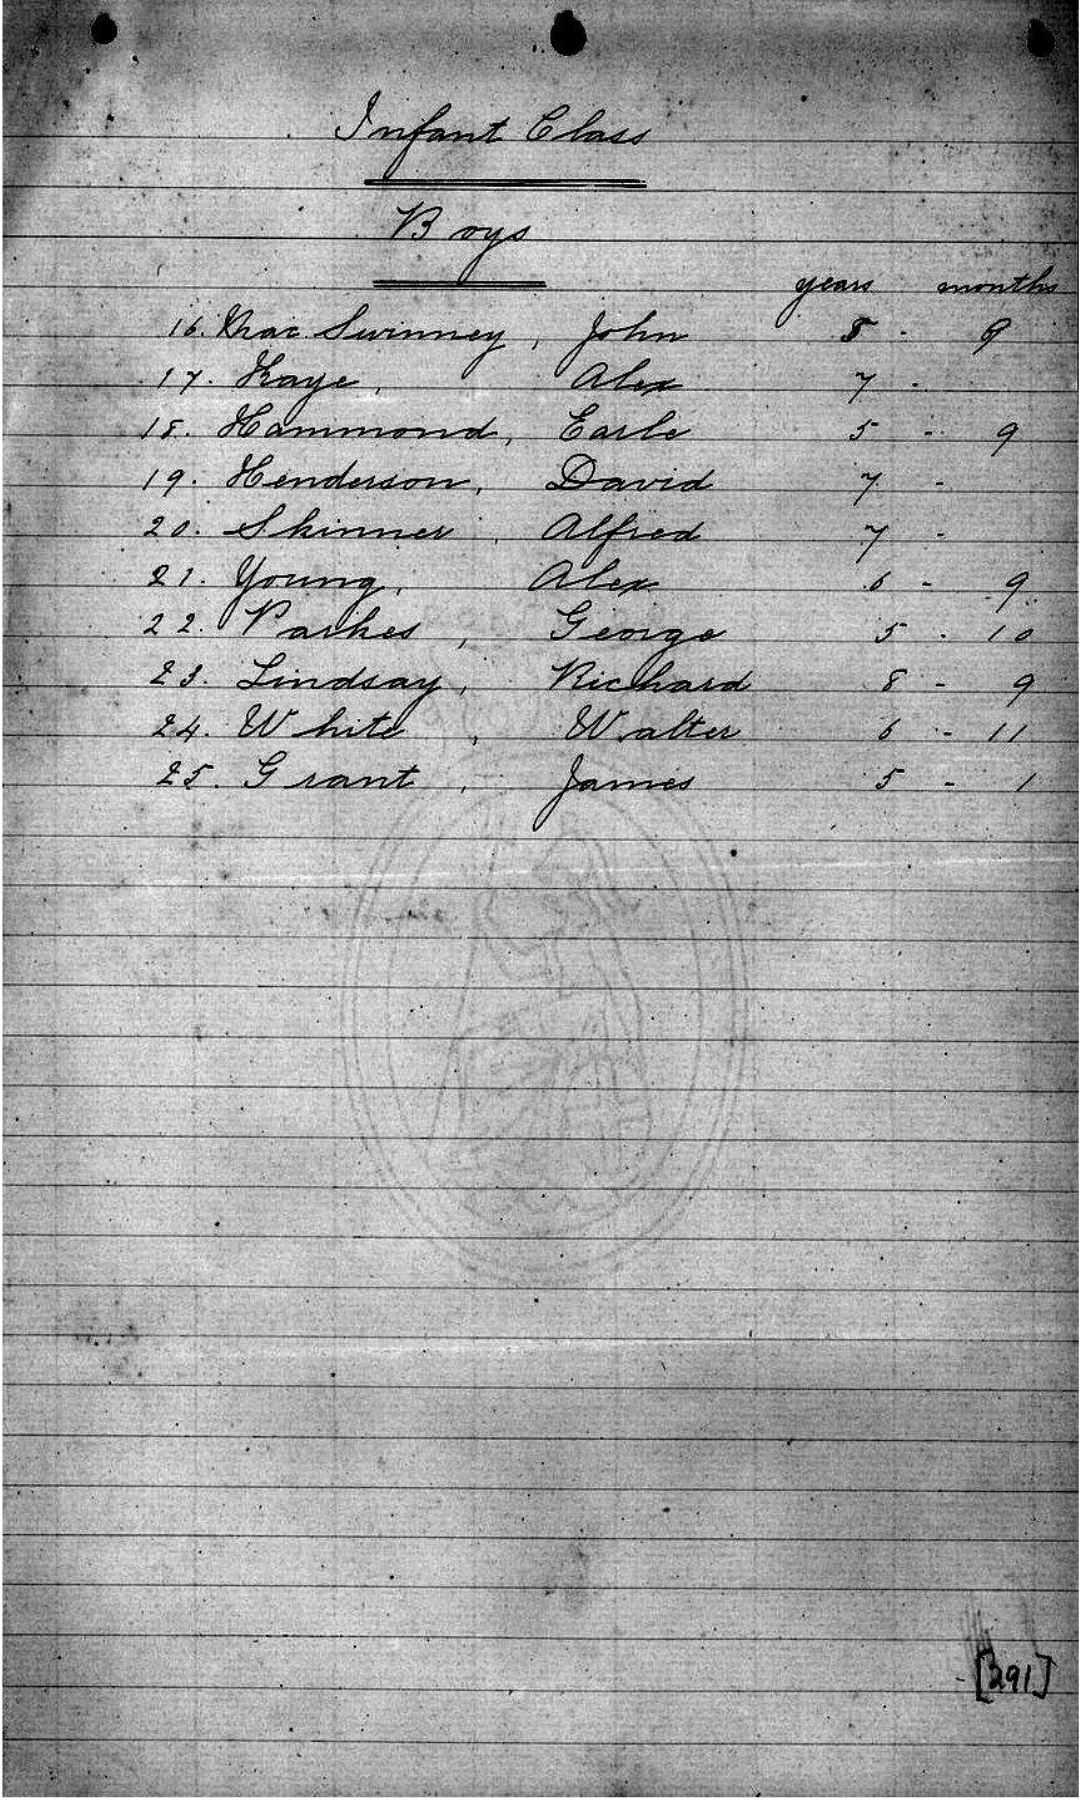 Infant Class
Boys
years months
16. MacSwinney, John 8 - 9
17. Kaye, Alex 7 -
18. Hammond, Earle 5 - 9
19. Henderson, David 7 -
20. Skinner, Alfred 7 -
21. Young, Alex 6 - 9
22. Parkes, George 5 - 10
23. Lindsay, Richard 8 - 9
24. White, Walter 6 - 11
25. Grant, James 5 - 1
[291]